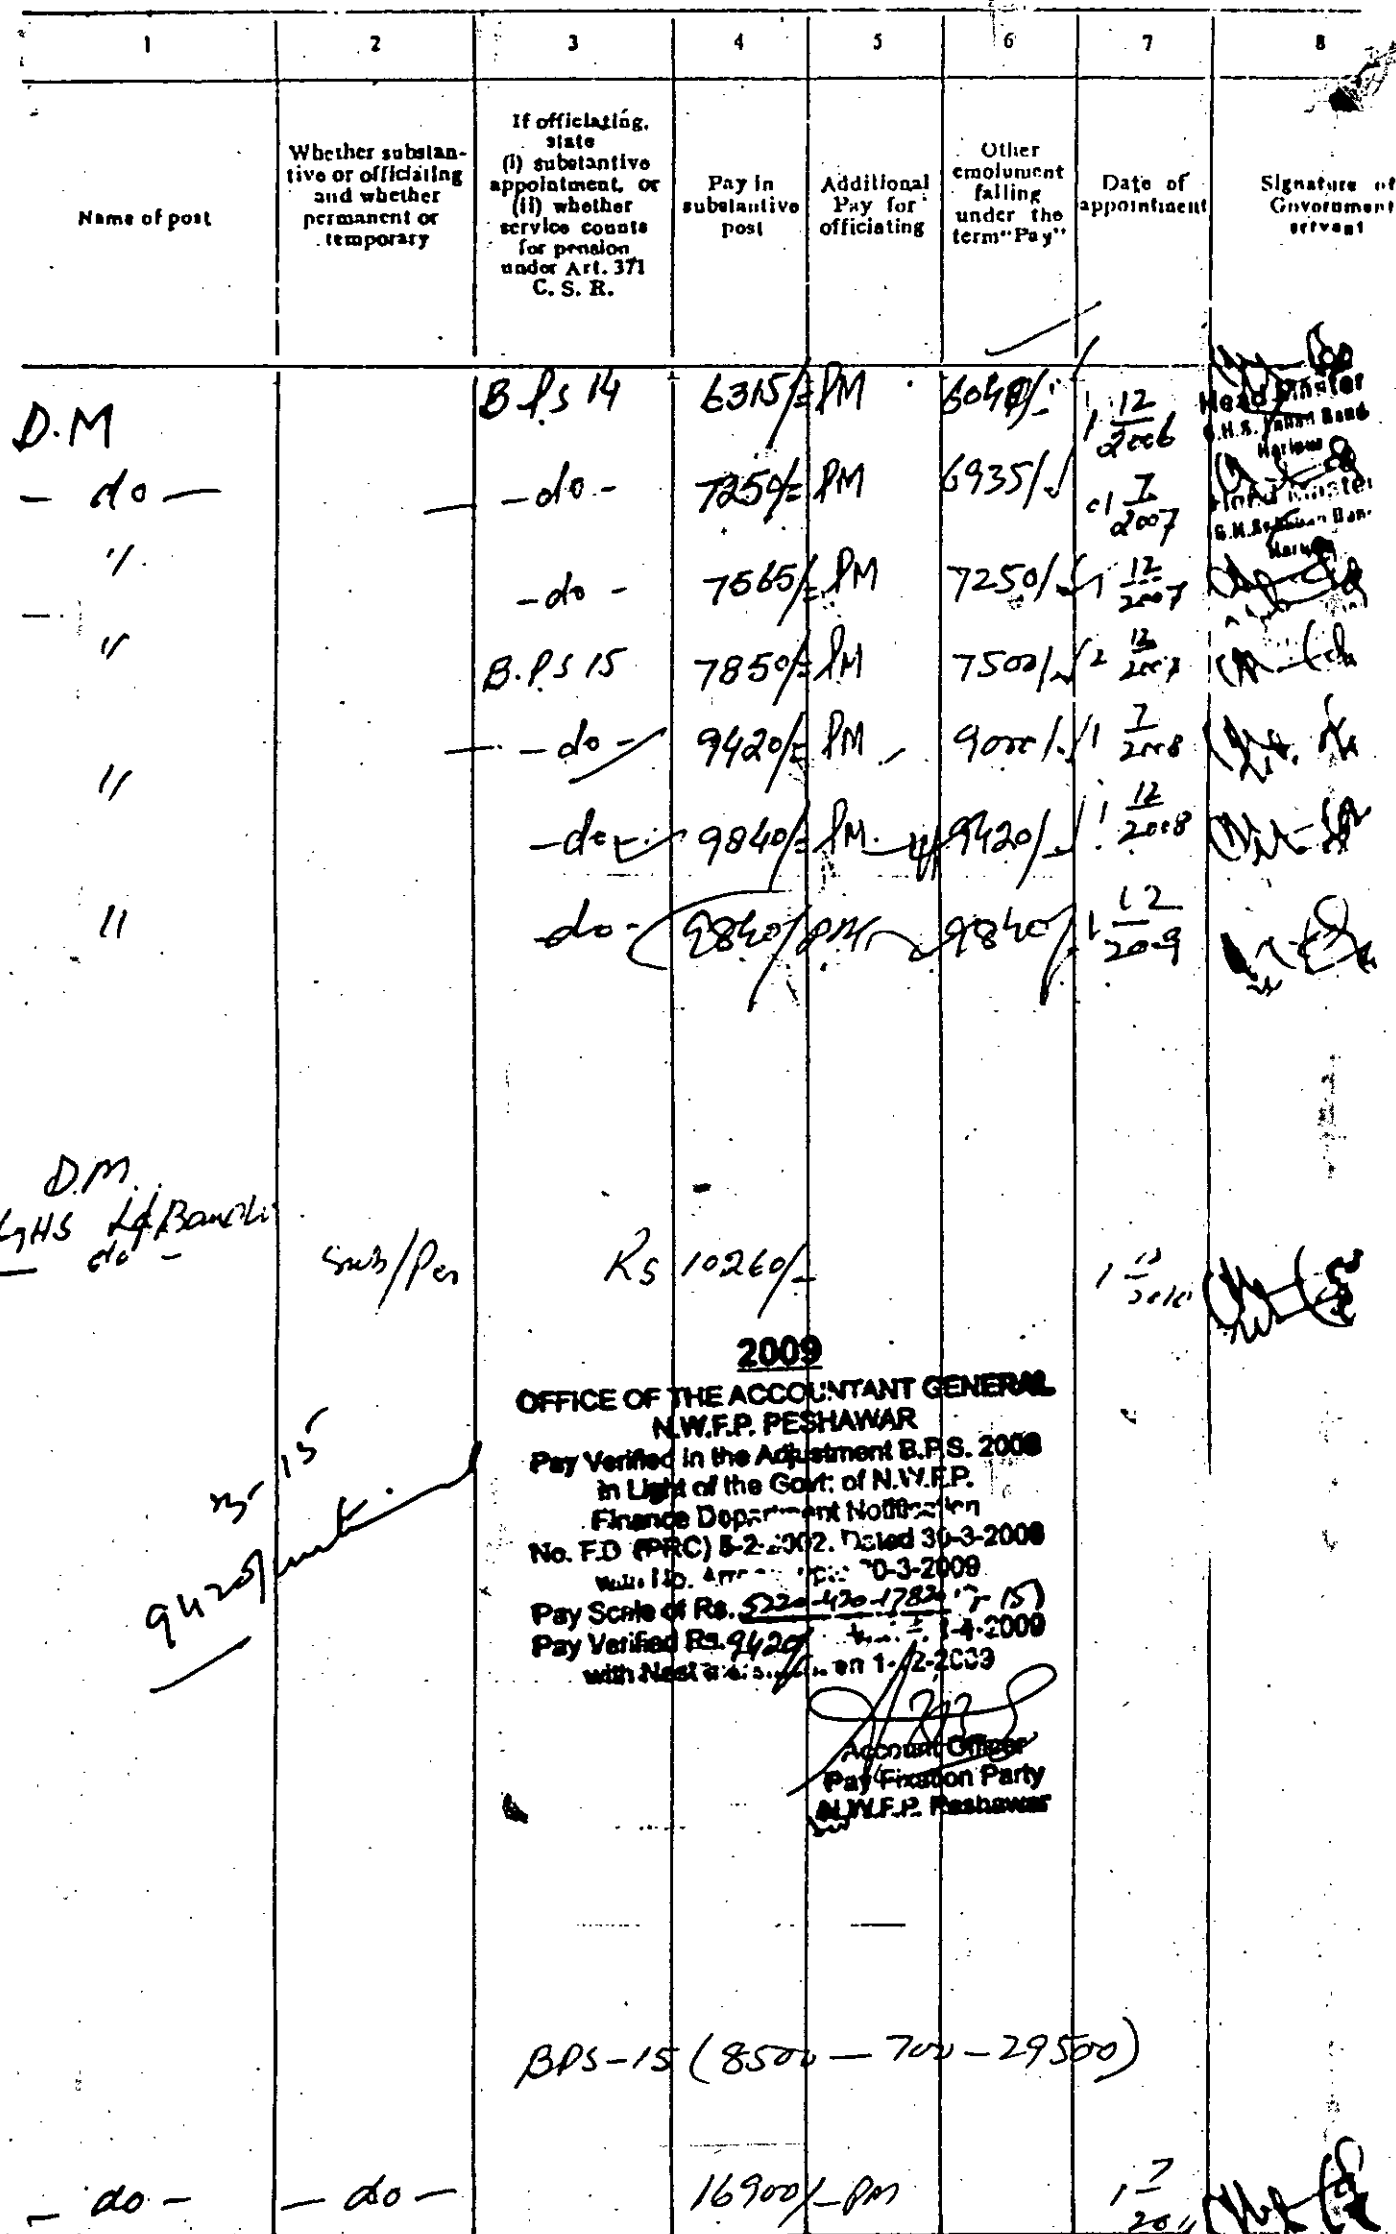 1 2 3 4 5 6 7 8
Name of post
Whether substan-
tive or officiating
and whether
permanent or
temporary
If officiating,
state
(i) substantive
appointment, or
(ii) whether
service counts
for pension
under Art. 371
C. S. R.
Pay in
substantive
post
Additional
Pay for
officiating
Other
emolument
falling
under the
term "Pay"
Date of
appointment
Signature of
Government
servant
D.M B.P.S 14 6315/= PM 6040/- 1 12 2006
Head Master
G.H.S.
- do - - do - 7250/= PM 6935/- 01 7 2007
G.H.S.
" - do - 7565/= PM 7250/- 1 12 2007
" B.P.S 15 7850/= PM 7500/- 2 12 2007
- do - 9420/= PM 9000/- 1 7 2008
" - do - 9840/= PM 9420/- 1 12 2008
" - do - 9840/ PM 9840/- 1 12 2009
D.M.
GHS
- do - Sub/Per Rs 10260/- 1 12 2010
2009
OFFICE OF THE ACCOUNTANT GENERAL
N.W.F.P. PESHAWAR
Pay Verified in the Adjustment B.P.S. 2008
in Light of the Govt: of N.W.F.P.
Finance Department Notification
No. F.D (PRC) Dated 30-3-2008
0-3-2009
Pay Scale of Rs. 5220-420-17820 15)
Pay Verified Rs. 9420/ -4-2009
with Next on 1-12-2009
15
9420/
Account Officer
Pay Fixation Party
N.W.F.P. Peshawar
BPS-15 (8500 - 700 - 29500)
- do - - do - 16900/- PM 1 7 2011